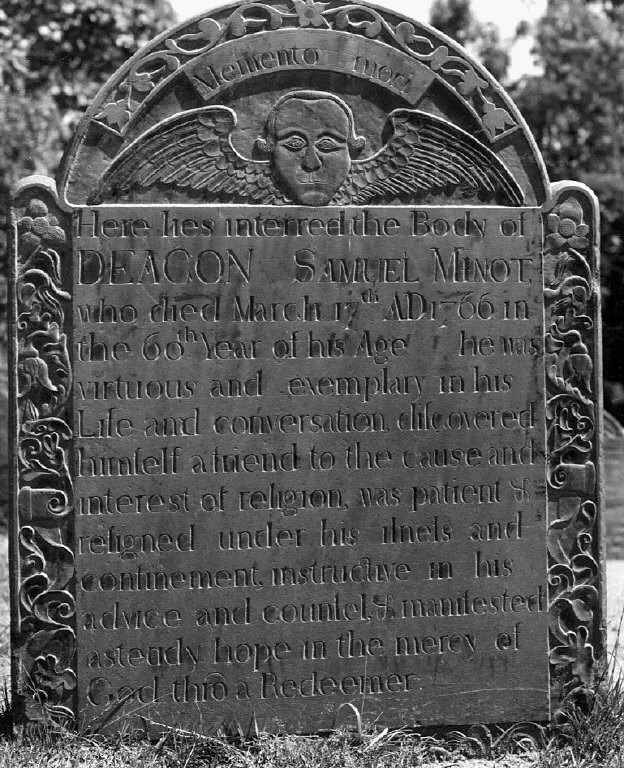 Memento mori
Here lies interred the Body of
DEACON SAMUEL MINOT,
who died March 17th AD1766 in
the 60th Year of his Age he was
virtuous and exemplary in his
Life and conversation, diſcovered
himſelf a friend to the cause and
interest of religion, was patient &
reſigned under his ilneſs and
confinement, instructive in his
advice and counſel, & manifested
a steady hope in the mercy of
God thro a Redeemer.